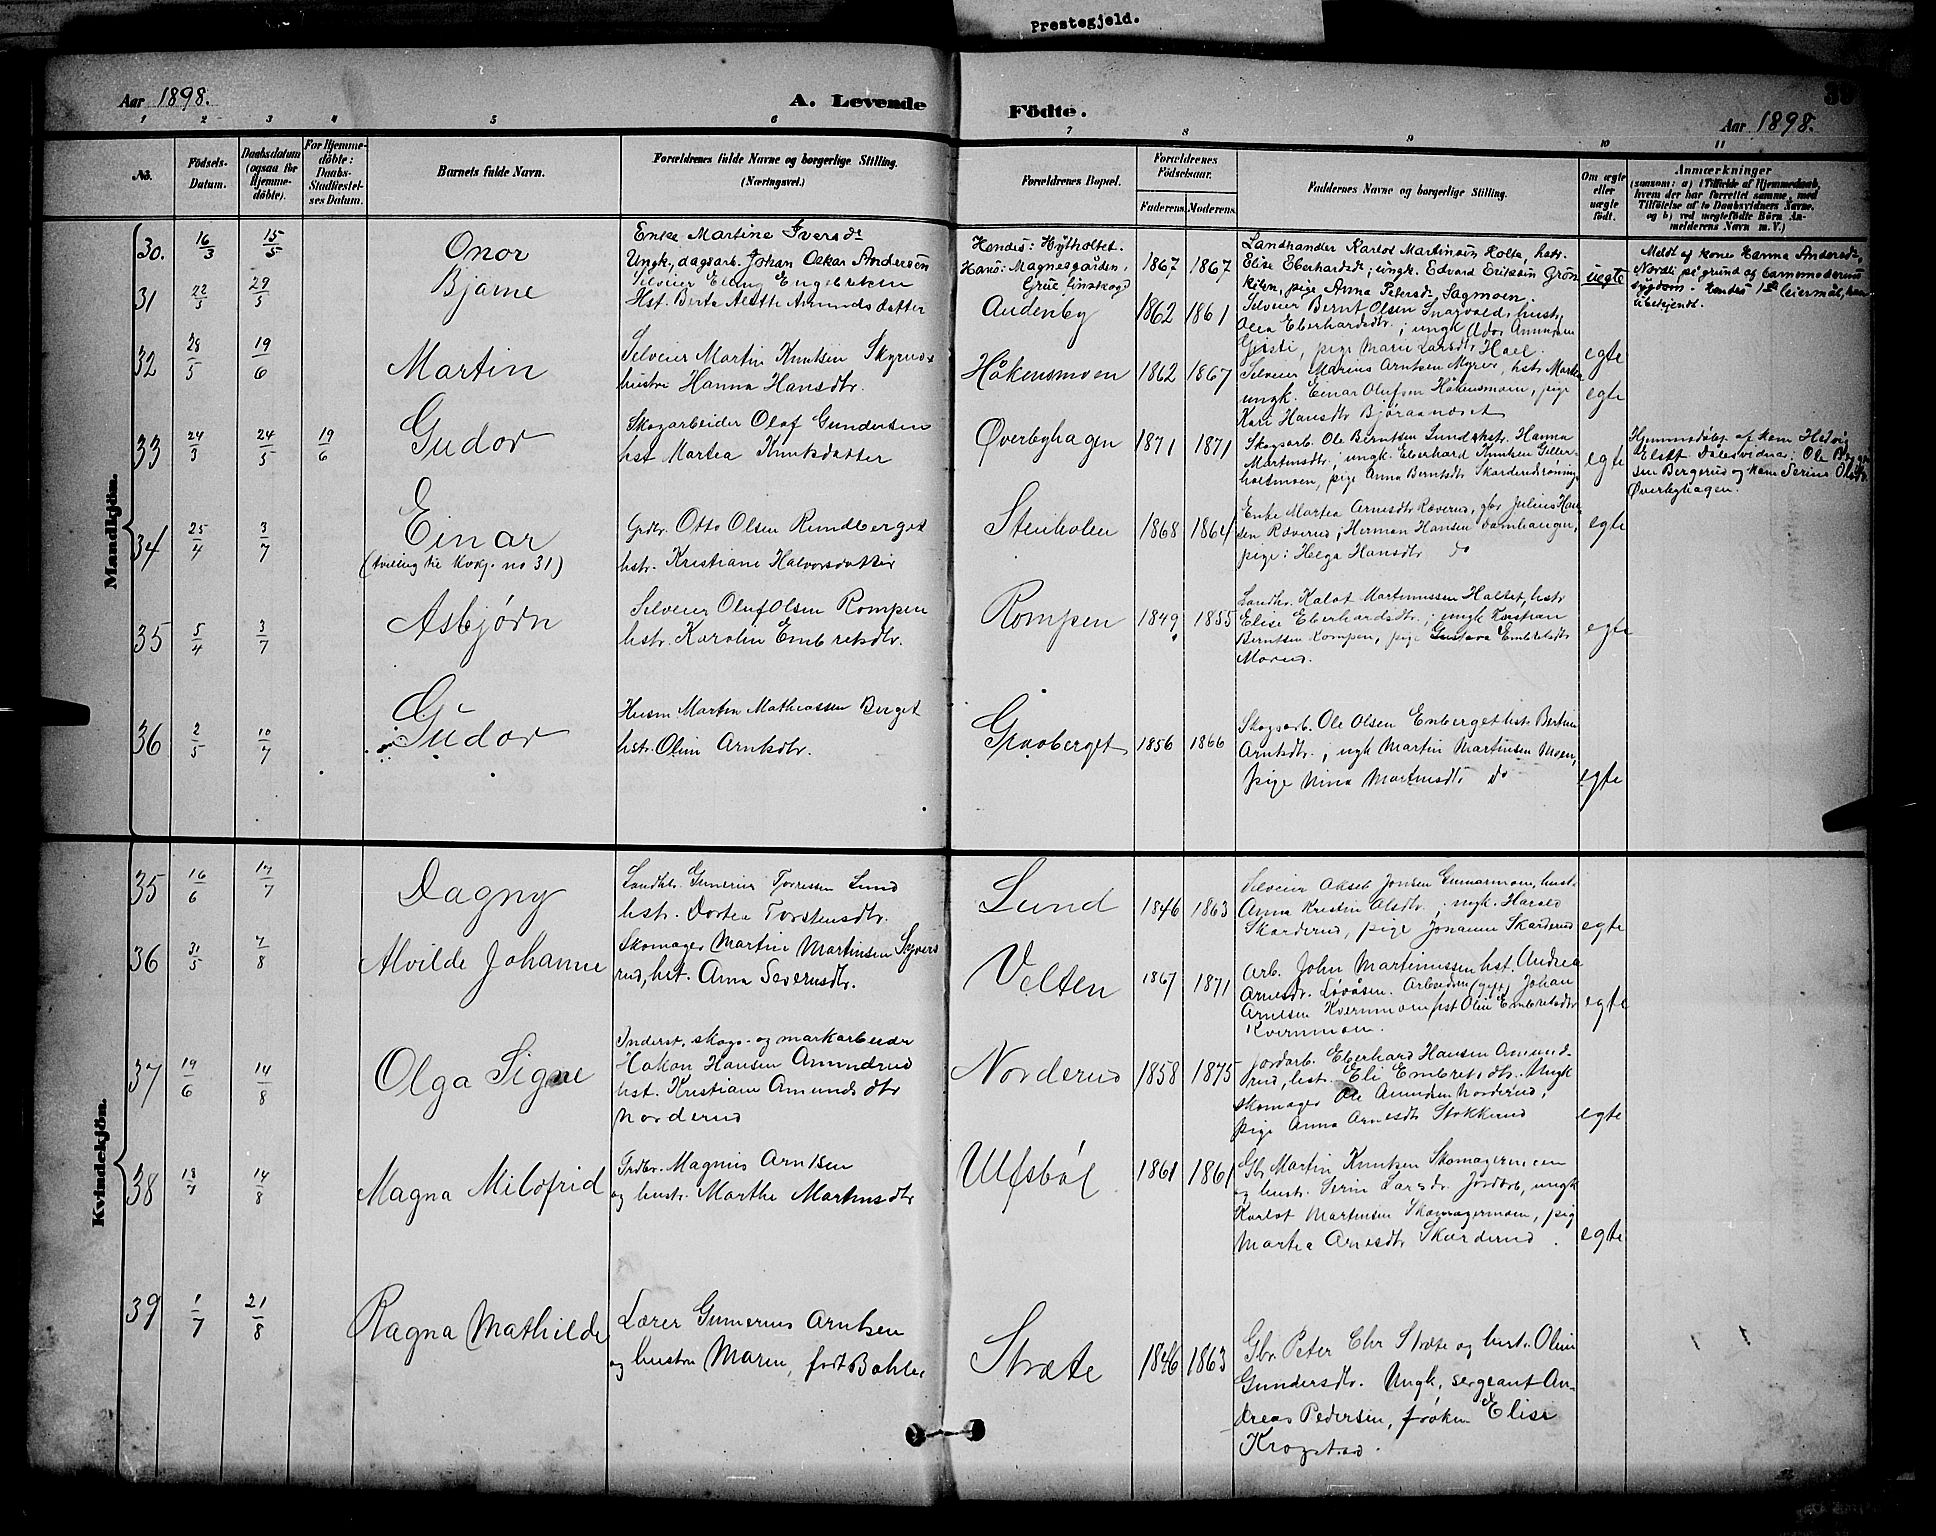 Prestegjeld.
Aar 1898.
A. Levende
Födte.
Aar 1898.
1 2 3 4 5 6 7 8 9 10 11
No.
Födsels-Datum.
Daabsdatum (ogsaa for Hjemmedöbte).
For Hjemmedöbte: Daabs-Stadfæstelses Datum.
Barnets fulde Navn.
Forældrenes fulde Navne og borgerlige Stilling. (Næringsvei.)
Forældrenes Bopæl.
Forældrenes Födselsaar.
Faderens. Moderens.
Faddernes Navne og borgerlige Stilling.
Om ægte eller uægte födt.
Anmærkninger
(saasom: a) i Tilfælde af Hjemmedaab, hvem der har forrettet samme, med Tilföielse af to Daabsvidners Navne, og b) ved uægtefödte Börn Anmelderens Navn m. V.)
Mandkjön.
30. 16/3 15/5 Onor
Enke Martine Iversdr
Ungk, dagsarb. Johan Oskar Andersen
Hendes: Hytholtet.
Hans: Magnesgården,
Grue Finskog
1867 1867
Landhander Karlot Martinsen Holte, hstr.
Elise Eberhardsdr; ungk. Edvard Eriksen Grön
kilen, pige Anna Petersdr Sagmoen.
uegte
Meldt af kone Hanna Andersdr
Nordli pg grund af barnemoderens
sygdom. Hendes 1ste leiermål, hans
ubekjendt.
31 22/3 29/5 Bjarne
Selveier Elang Engebretsen
Hst. Berte Alette Amundsdatter
Audenby
1862 1861
Selveier Bernt Olsen Snarvold, hustr.
Olea Eberhardsdtr; ungk Ador Amundsen
Gjesti, pige Marie Larsdtr Hael.
egte
32 28/5 19/6 Martin
Selveier Martin Knutsen Skyrud
hustru Hanna Hansdtr.
Håkensmoen
1862 1867
Selveier Marius Arntsen Myren, hstr Martea
ungk. Einar Olufsen Håkensmoen, pige
Kari Hansdtr Björaaneset
egte
33 24/3 24/5 19/6 Gudor
Skogarbeider Olaf Gundersen
hst Martea Knutsdatter
Øverbyhagen
1871 1871
Skogsarb. Ole Berntsen Lund hstr. Hanna
Martinsdtr; ungk. Eberhard Knutsen Giller-
holtmoen, pige Anna Berntsdtr Skarderudröning
egte
Hjemmedöbt af kone Hedvig
sen Bergerud og kone Serine Olsdtr
Øverbyhagen.
34 25/4 3/7 Einar
(tvilling til Kvkj. no 31)
Grdbr. Otto Olsen Rundberget
hstr. Kristiane Halvorsdatter
Stenholen
1868 1864
Enke Martea Arnesdtr Röverud, gbr Julius Han-
sen Röverud, Herman Hansen Damhaugen,
pige: Helga Hansdtr do
egte
35 5/4 3/7 Asbjørn
Selveier Oluf Olsen Rompen
hstr. Karolin Embretsdtr.
Rompen
1849 1855
Landhr. Kalot Martinussen Holtet, hstr
Elise Eberhardsdtr.; ungk Kristian
Berntsen Rompen, pige Gustava Embretsdtr
Morud.
egte
36 2/5 10/7 Gudor
Husm Martin Mathiassen Berget
hstr. Olin Arntsdtr.
Graaberget
1856 1866
Skogsarb. Ole Olsen Enberget hst. Bertine
Arntsdtr., ungk Martin Martinsen Moen,
pige Nina Martinsdtr do
egte
Kvindekjön.
35 16/6 17/7 Dagny
Landhr. Gunerius Torresen Lund
hstr. Dortea Torstensdtr.
Lund
1846 1863
Selveier Aksel Jonsen Gunnarmoen, hust.
Anna Kristin Olsdtr, ungk. Harald
Skarderud, pige Johanne Skarderud
egte
36 31/5 7/8 Alvilde Johanne
Skomager Martin Martinsen Syvers
rud, hst. Anna Severinsdtr.
Velten
1867 1871
Arb. John Martinussen hst. Andrea
Arnesdtr. Lövåsen. Arbeideren (gift) Johan
Arnesen Kvernmoen hst Olin Embretsdtr
Kvernmoen.
egte
37 19/6 14/8 Olga Signe
Inderst, skogs- og markarbeider
Håkon Hansen Amundrud
hst. Kristiane Amundsdtr
Norderud
Norderud
1858 1875
Jordarb. Eberhard Hansen Amund-
rud, hst. Eli Embretsdtr. Ungk
skomager Ole Amundsen Norderud,
pige Anna Arnesdtr Stokkerud
egte
38 18/7 14/8 Magna Mildfrid
Grdbr. Magnus Arntsen
og hustr. Marthe Martinsdtr
Ulfsböl
1861 1861
Gbr. Martin Knutsen Skomagermoen
og hustr. Serin Larsdtr. Jordarb, ungk
Karlot Martinsen Skomagermoen, pige
Martea Arnesdtr Skarderud.
egte
39 1/7 21/8 Ragna Mathilde
Lærer Gunerius Arntsen
og hustru Maren, født Bahler
Stræte
1846 1863
Gbr. Peter Chr Stræte og hustr. Olin
Gundersdtr. Ungk, sergeant An-
dreas Pedersen, frøken Elise
Krogstad.